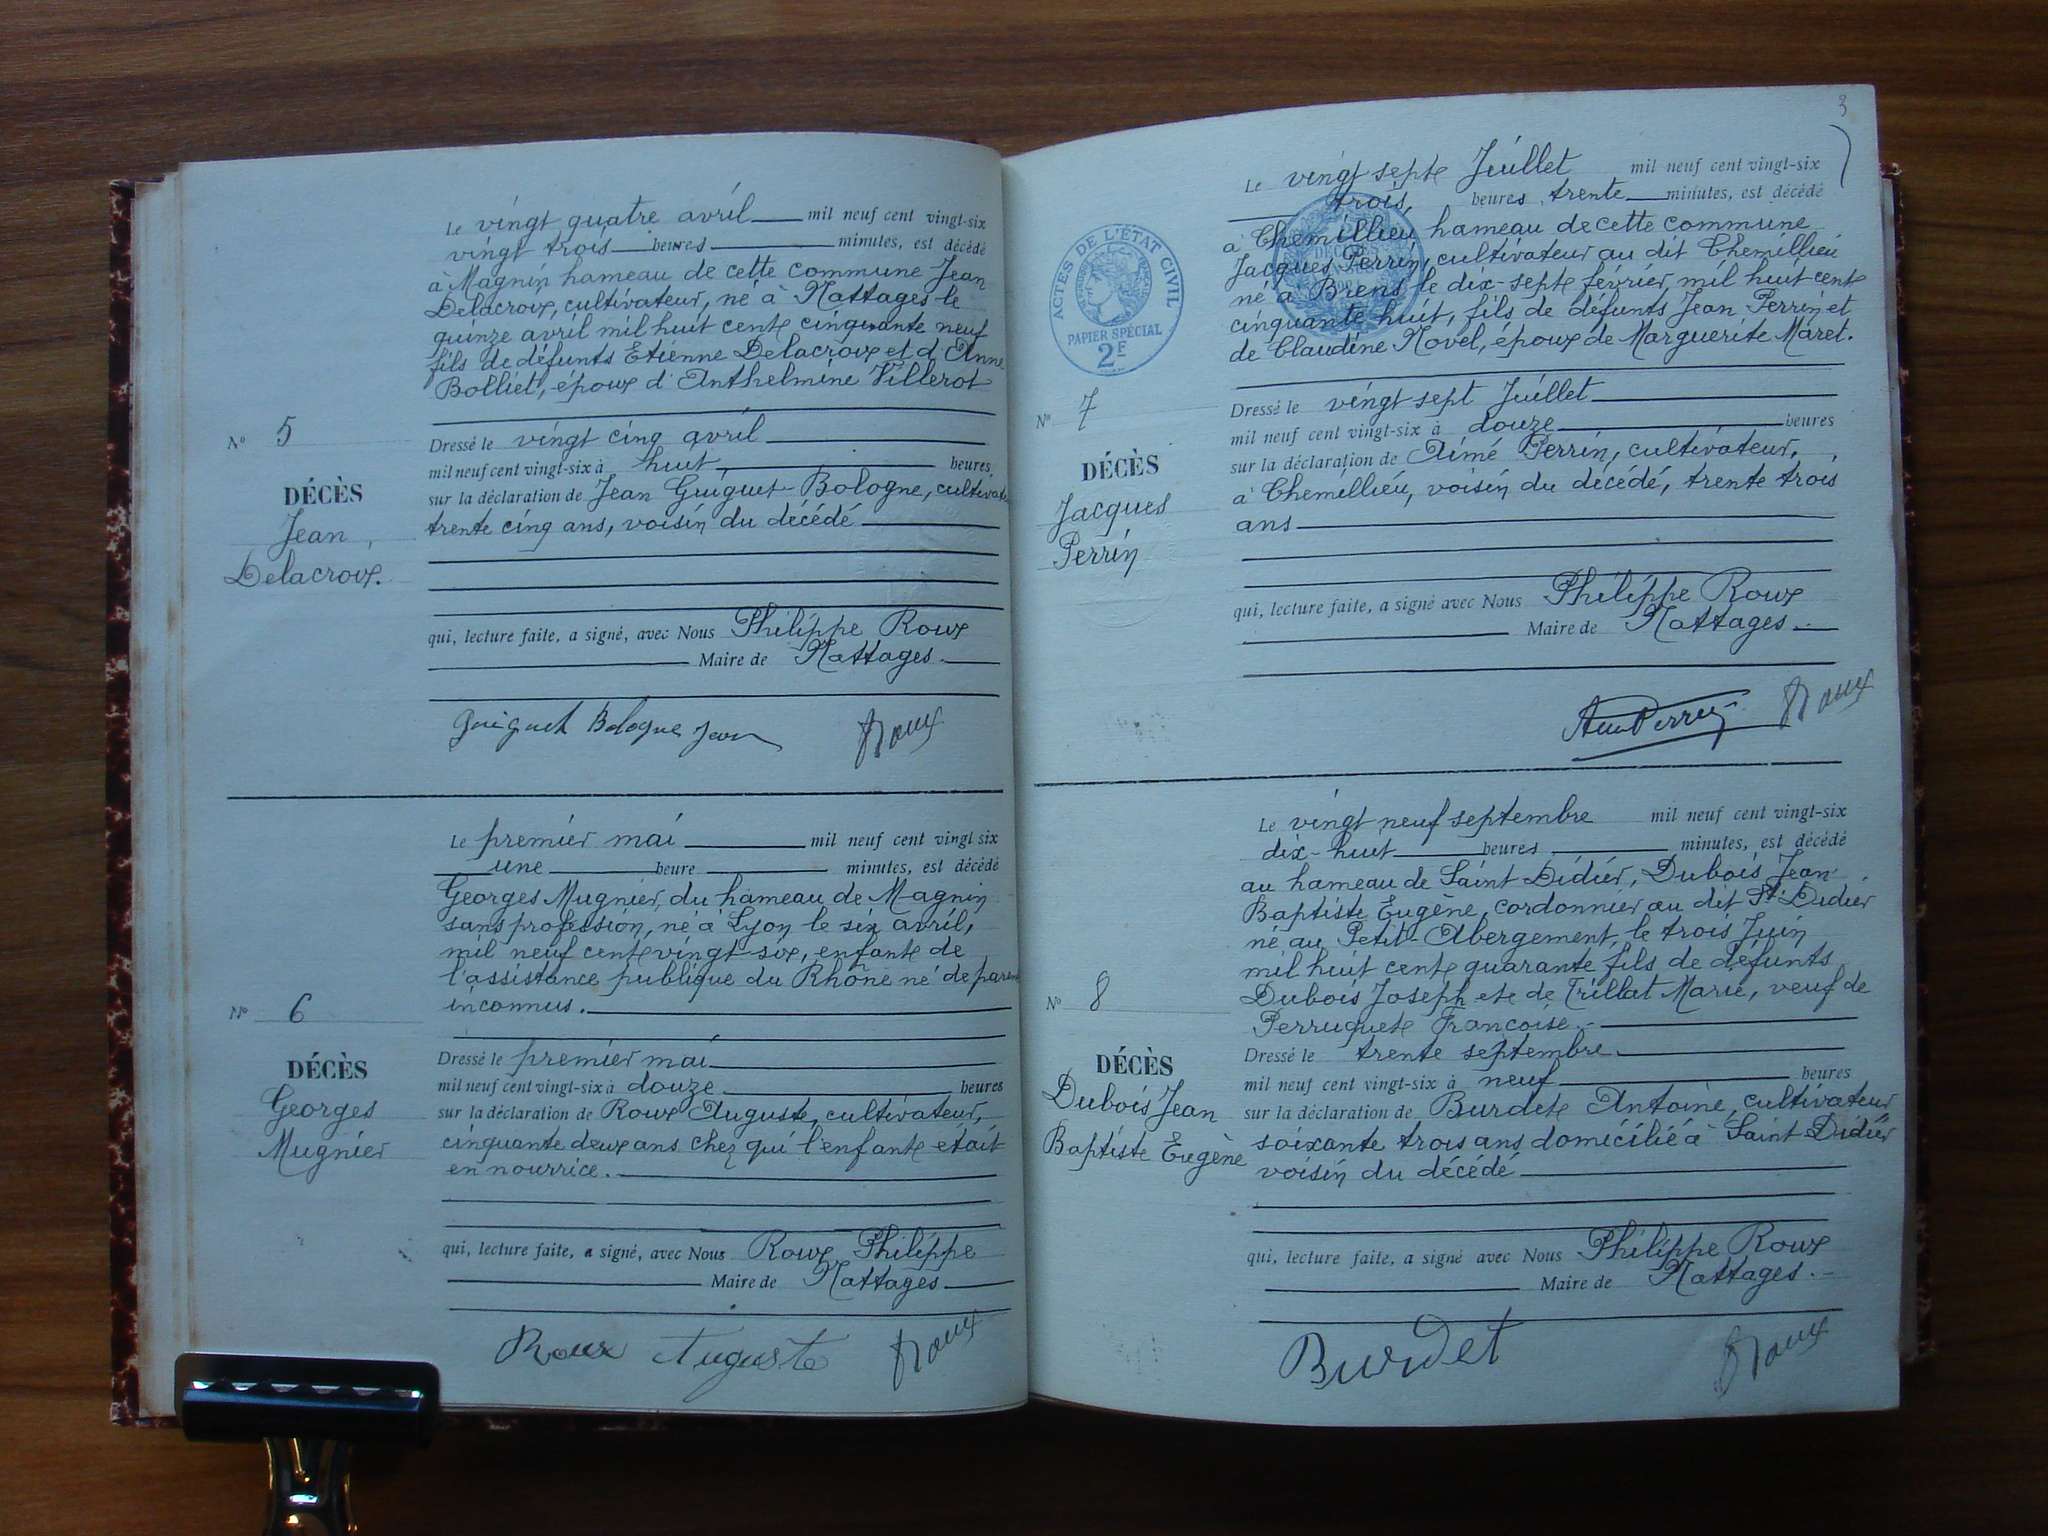 Le vingt quatre avril mil neuf cent vingt-six
vingt trois heures minutes, est décédé
à Magnin hameau de cette commune Jean
Delacroix, cultivateur, né à Nattages le
quinze avril mil huit cent cinquante neuf
fils de défunts Etienne Delacroix et d'Anne
Bolliet, époux d'Anthelmine Villerot
N° 5
DÉCÈS
Jean
Delacroix.
Dressé le vingt cinq avril
mil neuf cent vingt-six à huit heures,
sur la déclaration de Jean Guiguet-Bologne, cultivat
trente cinq ans, voisin du décédé
qui, lecture faite, a signé, avec Nous Philippe Roux
Maire de Nattages.
Guiguet Bologne Jean Roux
Le premier mai mil neuf cent vingt six
une heure minutes, est décédé
Georges Mugnier, du hameau de Magnin
sans profession, né à Lyon le six avril,
mil neuf cent vingt six, enfant de
l'assistance publique du Rhône né de paren
inconnus.
N° 6
DÉCÈS
Georges
Mugnier
Dressé le premier mai
mil neuf cent vingt-six à douze heures
sur la déclaration de Roux Auguste, cultivateur,
cinquante deux ans chez qui l'enfant était
en nourrice.
qui, lecture faite, a signé, avec Nous Roux Philippe
Maire de Nattages
Roux Auguste Roux
3
Le vingt sept Juillet mil neuf cent vingt-six
trois, heures trente minutes, est décédé
à Chemillieu hameau de cette commune
Jacques Perrin, cultivateur au dit Chemillieu
né à Brens le dix-sept février, mil huit cent
cinquante huit, fils de défunts Jean Perrin et
de Claudine Novel, époux de Marguerite Maret.
ACTES DE L'ÉTAT CIVIL
PAPIER SPÉCIAL
2F
N° 7
DÉCÈS
Jacques
Perrin
Dressé le vingt sept Juillet
mil neuf cent vingt-six à douze heures
sur la déclaration de Aimé Perrin, cultivateur,
à Chemillieu, voisin du décédé, trente trois
ans
qui, lecture faite, a signé avec Nous Philippe Roux
Maire de Nattages.
Perrin Roux
Le vingt neuf septembre mil neuf cent vingt-six
dix-huit heures minutes, est décédé
au hameau de Saint Didier, Dubois Jean
Baptiste Eugène, cordonnier au dit St Didier
né au Petit-Abergement, le trois Juin
mil huit cent quarante fils de défunts
Dubois Joseph et de Trillat Marie, veuf de
Perruquet Françoise.
N° 8
DÉCÈS
Dubois Jean
Baptiste Eugène
Dressé le trente septembre.
mil neuf cent vingt-six à neuf heures
sur la déclaration de Burdet Antoine, cultivateur
soixante trois ans domicilié à Saint Didier
voisin du décédé
qui, lecture faite, a signé avec Nous Philippe Roux
Maire de Nattages.
Burdet Roux